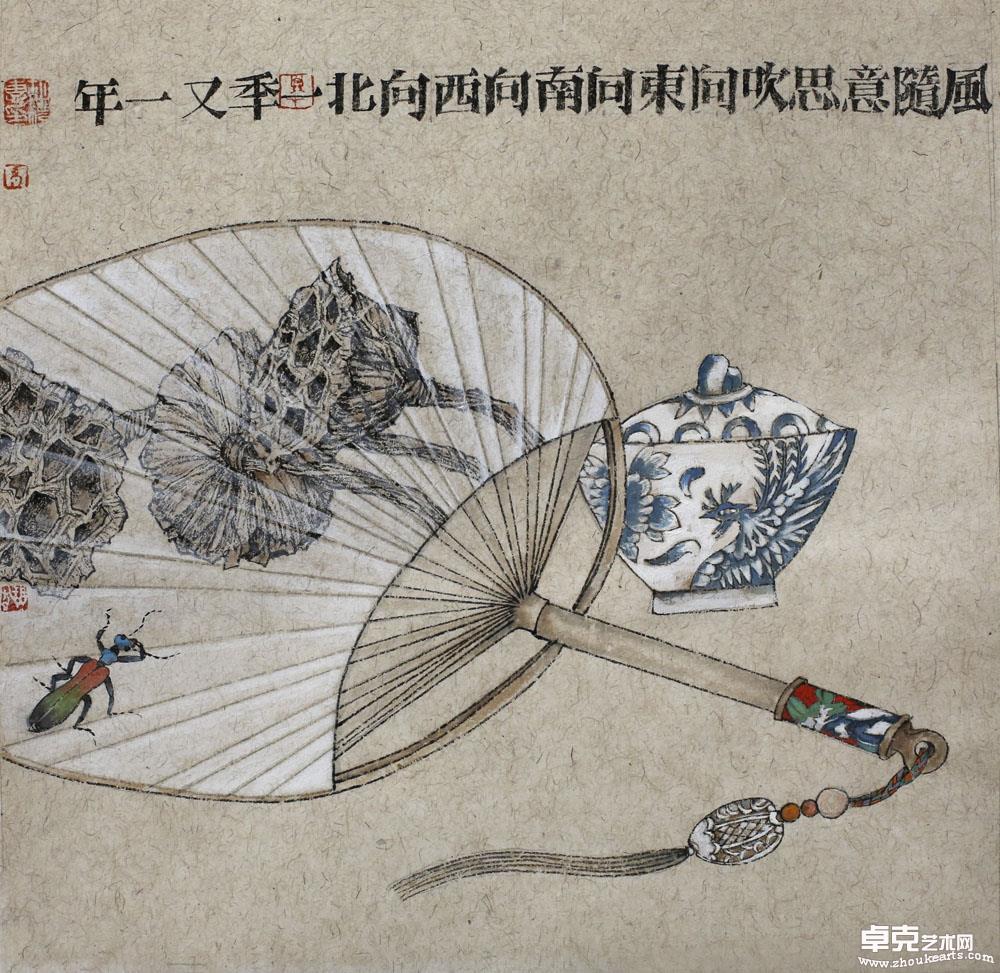 風隨意思吹向東向南向西向北一季又一年
卓克艺术网
www.zhoukearts.com